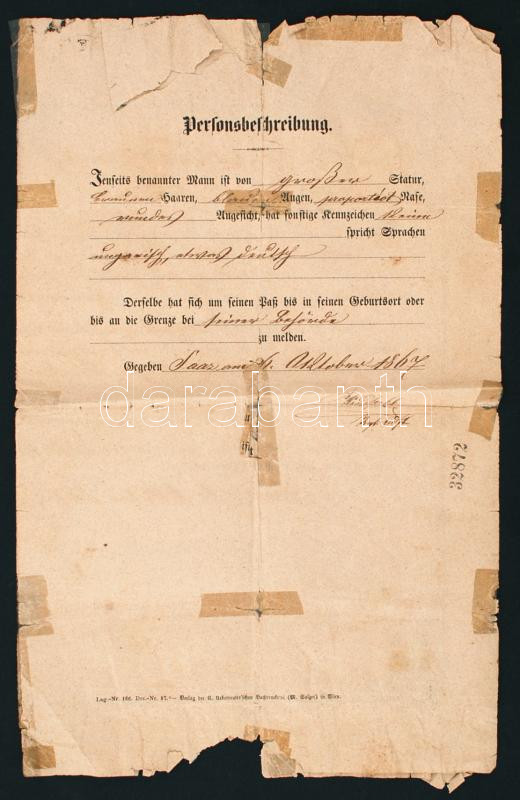 Personsbeschreibung.
Jenseits benannter Mann ist von großer Statur,
braunen Haaren, blauen Augen, proport. Nase,
rundes Angesicht, hat sonstige Kennzeichen keine
spricht Sprachen
ungarisch, etwas deutsch
Derselbe hat sich um seinen Paß bis in seinen Geburtsort oder
bis an die Grenze bei seiner Behörde
zu melden.
Gegeben Saaz am 4. Oktober 1867
darabanth
32872
Lag.-Nr. 166. Drs.-Nr. 87.— Verlag der K. Ueberreuter'schen Buchdruckerei (M. Salzer) in Wien.